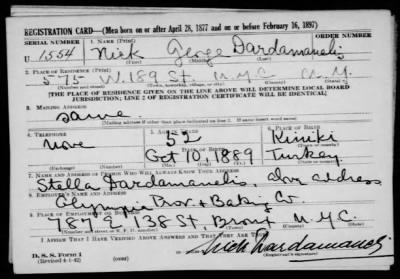 REGISTRATION CARD—(Men born on or after April 28, 1877 and on or before February 16, 1897)
SERIAL NUMBER 1. NAME (Print)
U 1554 Nick George Dardamanelis
(First) (Middle) (Last)
2. PLACE OF RESIDENCE (Print)
575 W. 189 St. N.Y.C. N.Y.
(Number and street) (Town, township, village, or city) (County) (State)
[THE PLACE OF RESIDENCE GIVEN ON THE LINE ABOVE WILL DETERMINE LOCAL BOARD
JURISDICTION; LINE 2 OF REGISTRATION CERTIFICATE WILL BE IDENTICAL]
3. MAILING ADDRESS
Same
[Mailing address if other than place indicated on line 2. If same insert word same]
4. TELEPHONE 5. AGE IN YEARS 6. PLACE OF BIRTH
None 52
DATE OF BIRTH
Oct 10, 1889 Turkey
(Exchange) (Number) (Mo.) (Day) (Yr.) (State or country)
7. NAME AND ADDRESS OF PERSON WHO WILL ALWAYS KNOW YOUR ADDRESS
Stella Dardamanelis, above address
8. EMPLOYER'S NAME AND ADDRESS
Olympia Prov. & Baking Co.
138 St, Bronx N.Y.C.
I AFFIRM THAT I HAVE VERIFIED ABOVE ANSWERS AND THAT THEY ARE TRUE.
D. S. S. Form 1
(Revised 4-1-42)
Nick Dardamanelis
(Registrant's signature)